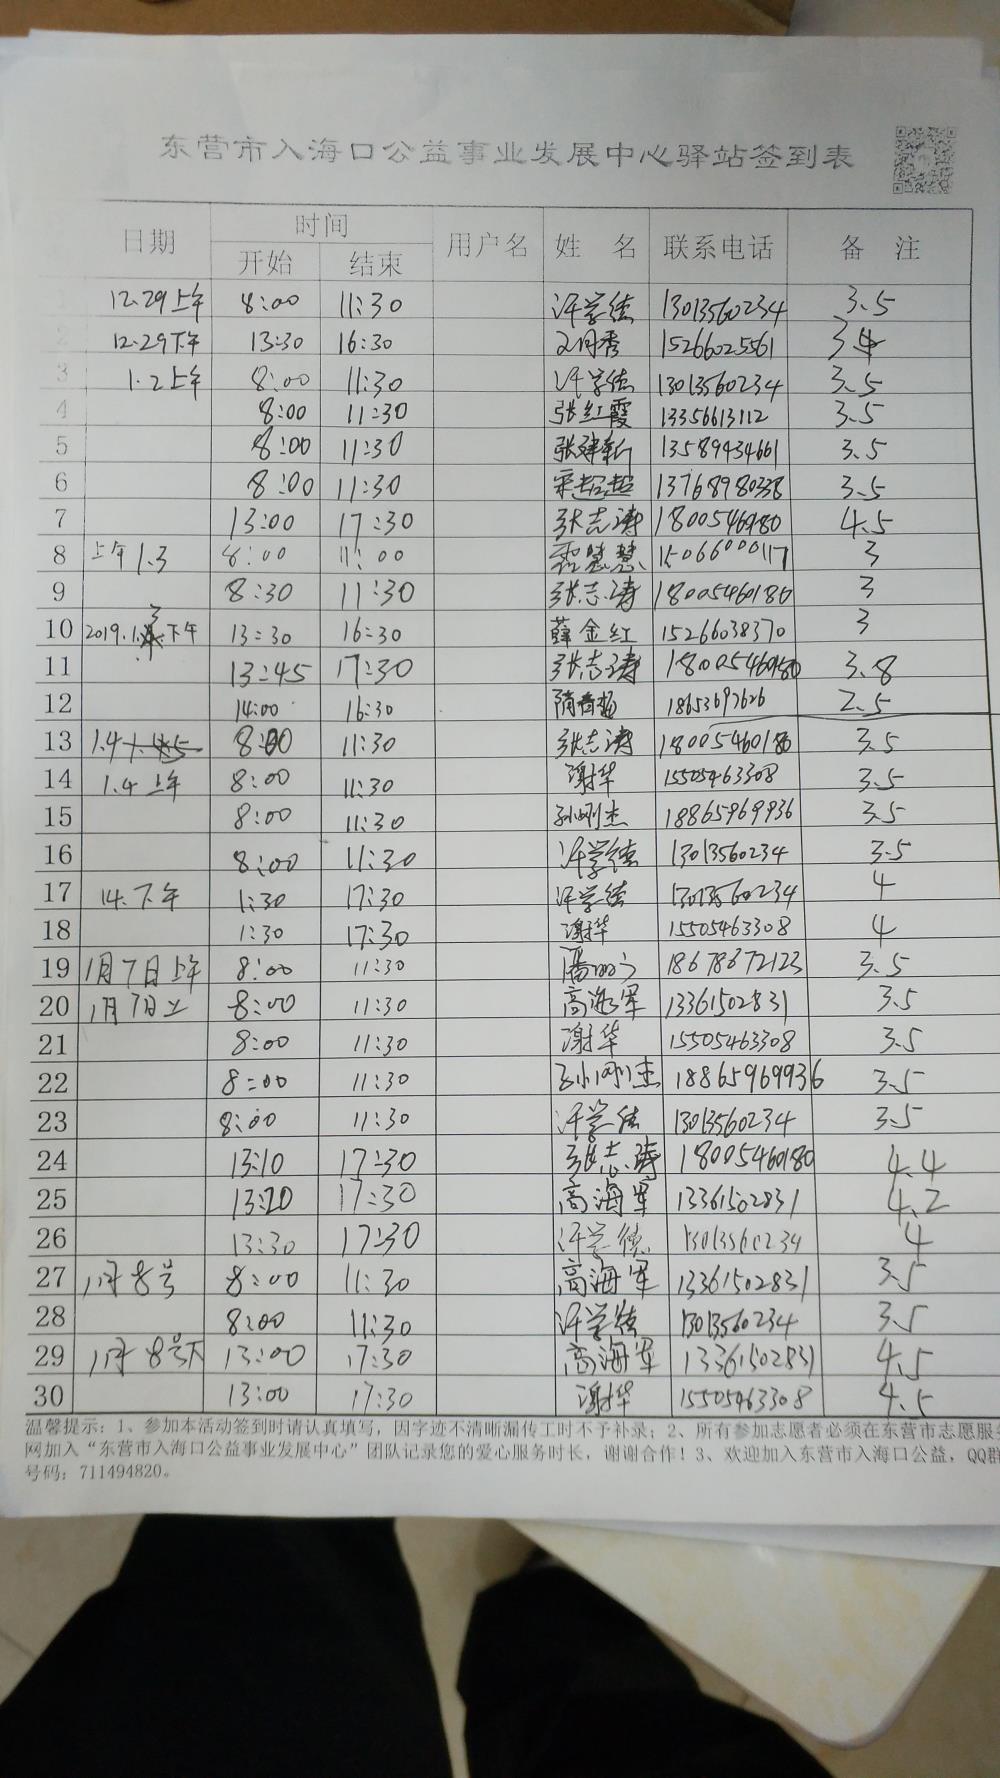 东营市入海口公益事业发展中心驿站签到表
日期 时间 用户名 姓 名 联系电话 备 注
开始 结束
1 12.29上午 8:00 11:30 许学德 13013560234 3.5
2 12.29下午 13:30 16:30 15266025561 3
3 1.2上午 8:00 11:30 许学德 13013560234 3.5
4 8:00 11:30 张红霞 13356613112 3.5
5 8:00 11:30 张建新 13589434661 3.5
6 8:00 11:30 宋超超 13768980338 3.5
7 13:00 17:30 张志涛 4.5
8 上午1.3 8:00 11:00 慧慧 15066000117 3
9 8:30 11:30 张志涛 18005460180 3
10 2019.1.3下午 13:30 16:30 薛金红 15266038370 3
11 13:45 17:30 张志涛 18005460180 3.8
12 14:00 16:30 隋春梅 18653697626 2.5
13 1.4 8:00 11:30 张志涛 18005460180 3.5
14 1.4上午 8:00 11:30 谢华 15505463308 3.5
15 8:00 11:30 孙刚杰 18865969936 3.5
16 8:00 11:30 许学德 13013560234 3.5
17 14.下午 1:30 17:30 许学德 13013560234 4
18 1:30 17:30 谢华 15505463308 4
19 1月7日上午 8:00 11:30 潘 18678672123 3.5
20 1月7日上 8:00 11:30 高海军 13361502831 3.5
21 8:00 11:30 谢华 15505463308 3.5
22 8:00 11:30 孙刚杰 18865969936 3.5
23 8:00 11:30 许学德 13013560234 3.5
24 13:10 17:30 张志涛 18005460180 4.4
25 13:20 17:30 高海军 13361502831 4.2
26 13:30 17:30 许学德 13013560234 4
27 1月8号 8:00 11:30 高海军 13361502831 3.5
28 8:00 11:30 许学德 13013560234 3.5
29 1月8号下 13:00 17:30 高海军 13361502831 4.5
30 13:00 17:30 谢华 15505463308 4.5
温馨提示：1、参加本活动签到时请认真填写，因字迹不清晰漏传工时不予补录；2、所有参加志愿者必须在东营市志愿服务
网加入“东营市入海口公益事业发展中心”团队记录您的爱心服务时长，谢谢合作！3、欢迎加入东营市入海口公益，QQ群
号码：711494820。